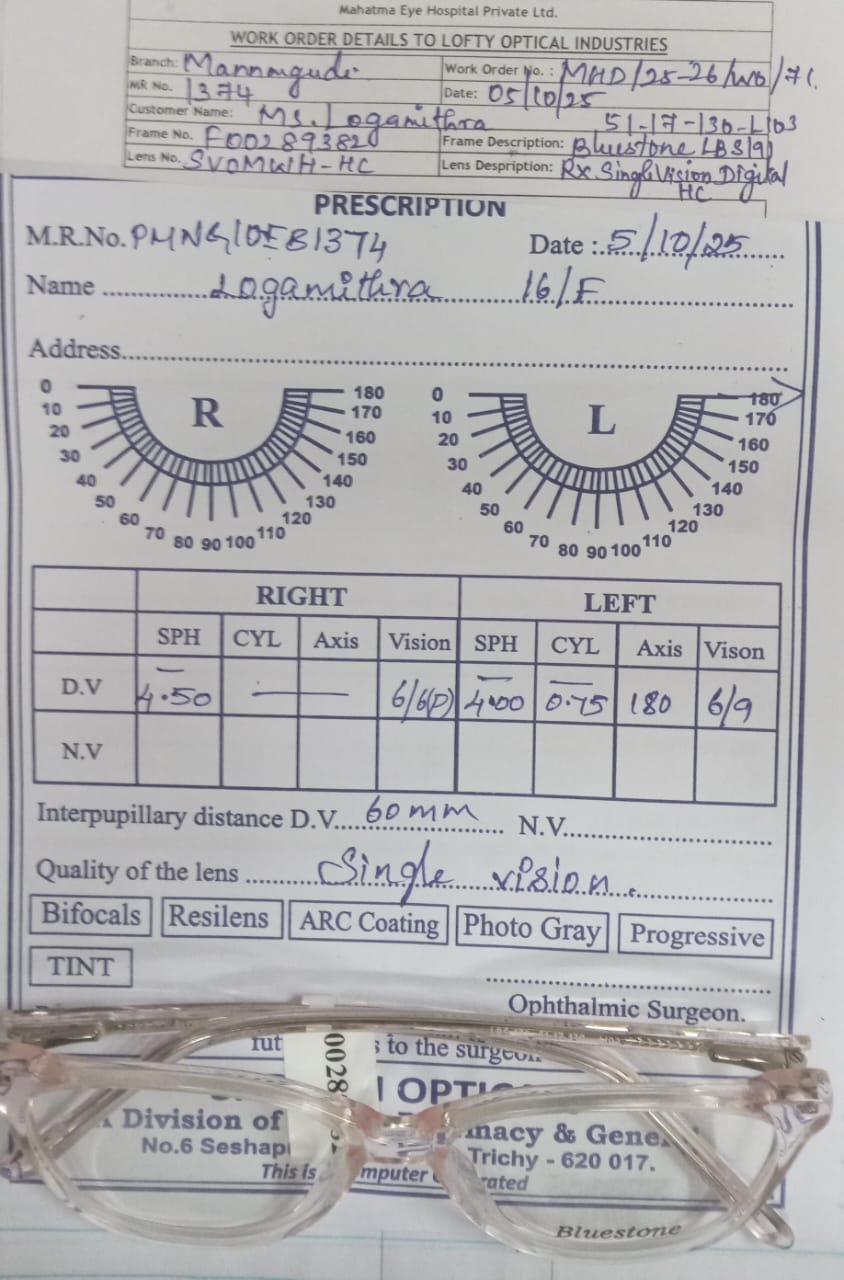 Mahatma Eye Hospital Private Ltd.
WORK ORDER DETAILS TO LOFTY OPTICAL INDUSTRIES
Branch: Mannargudi Work Order No. : MHD/25-26/WO/71
MR No. 1374 Date: 05/10/25
Customer Name: Ms. Logamithra 51-17-130-L103
Frame No. F00289382 Frame Description: Bluestone LBS191
Lens No. SVOMWIH-HC Lens Despription: Rx. Single Vision Digital
HC
PRESCRIPTION
M.R.No. Date :. 5/10/25
Name Logamithra 16/F
Address
0 180 0 180
10 170 10 170
20 R 160 20 L 160
30 150 30 150
40 140 40 140
50 130 50 130
60 120 60 120
70 80 90 100 110 70 80 90 100 110
RIGHT LEFT
SPH CYL Axis Vision SPH CYL Axis Vison
D.V -4.50 — — 6/6(P) -4.00 -0.75 180 6/9
N.V
Interpupillary distance D.V. 60 mm N.V.
Quality of the lens Single vision.
Bifocals Resilens ARC Coating Photo Gray Progressive
TINT
Ophthalmic Surgeon.
to the surgeon
OPTIC
Division of macy & Gene
No.6 Seshap Trichy - 620 017.
This is mputer rated
Bluestone